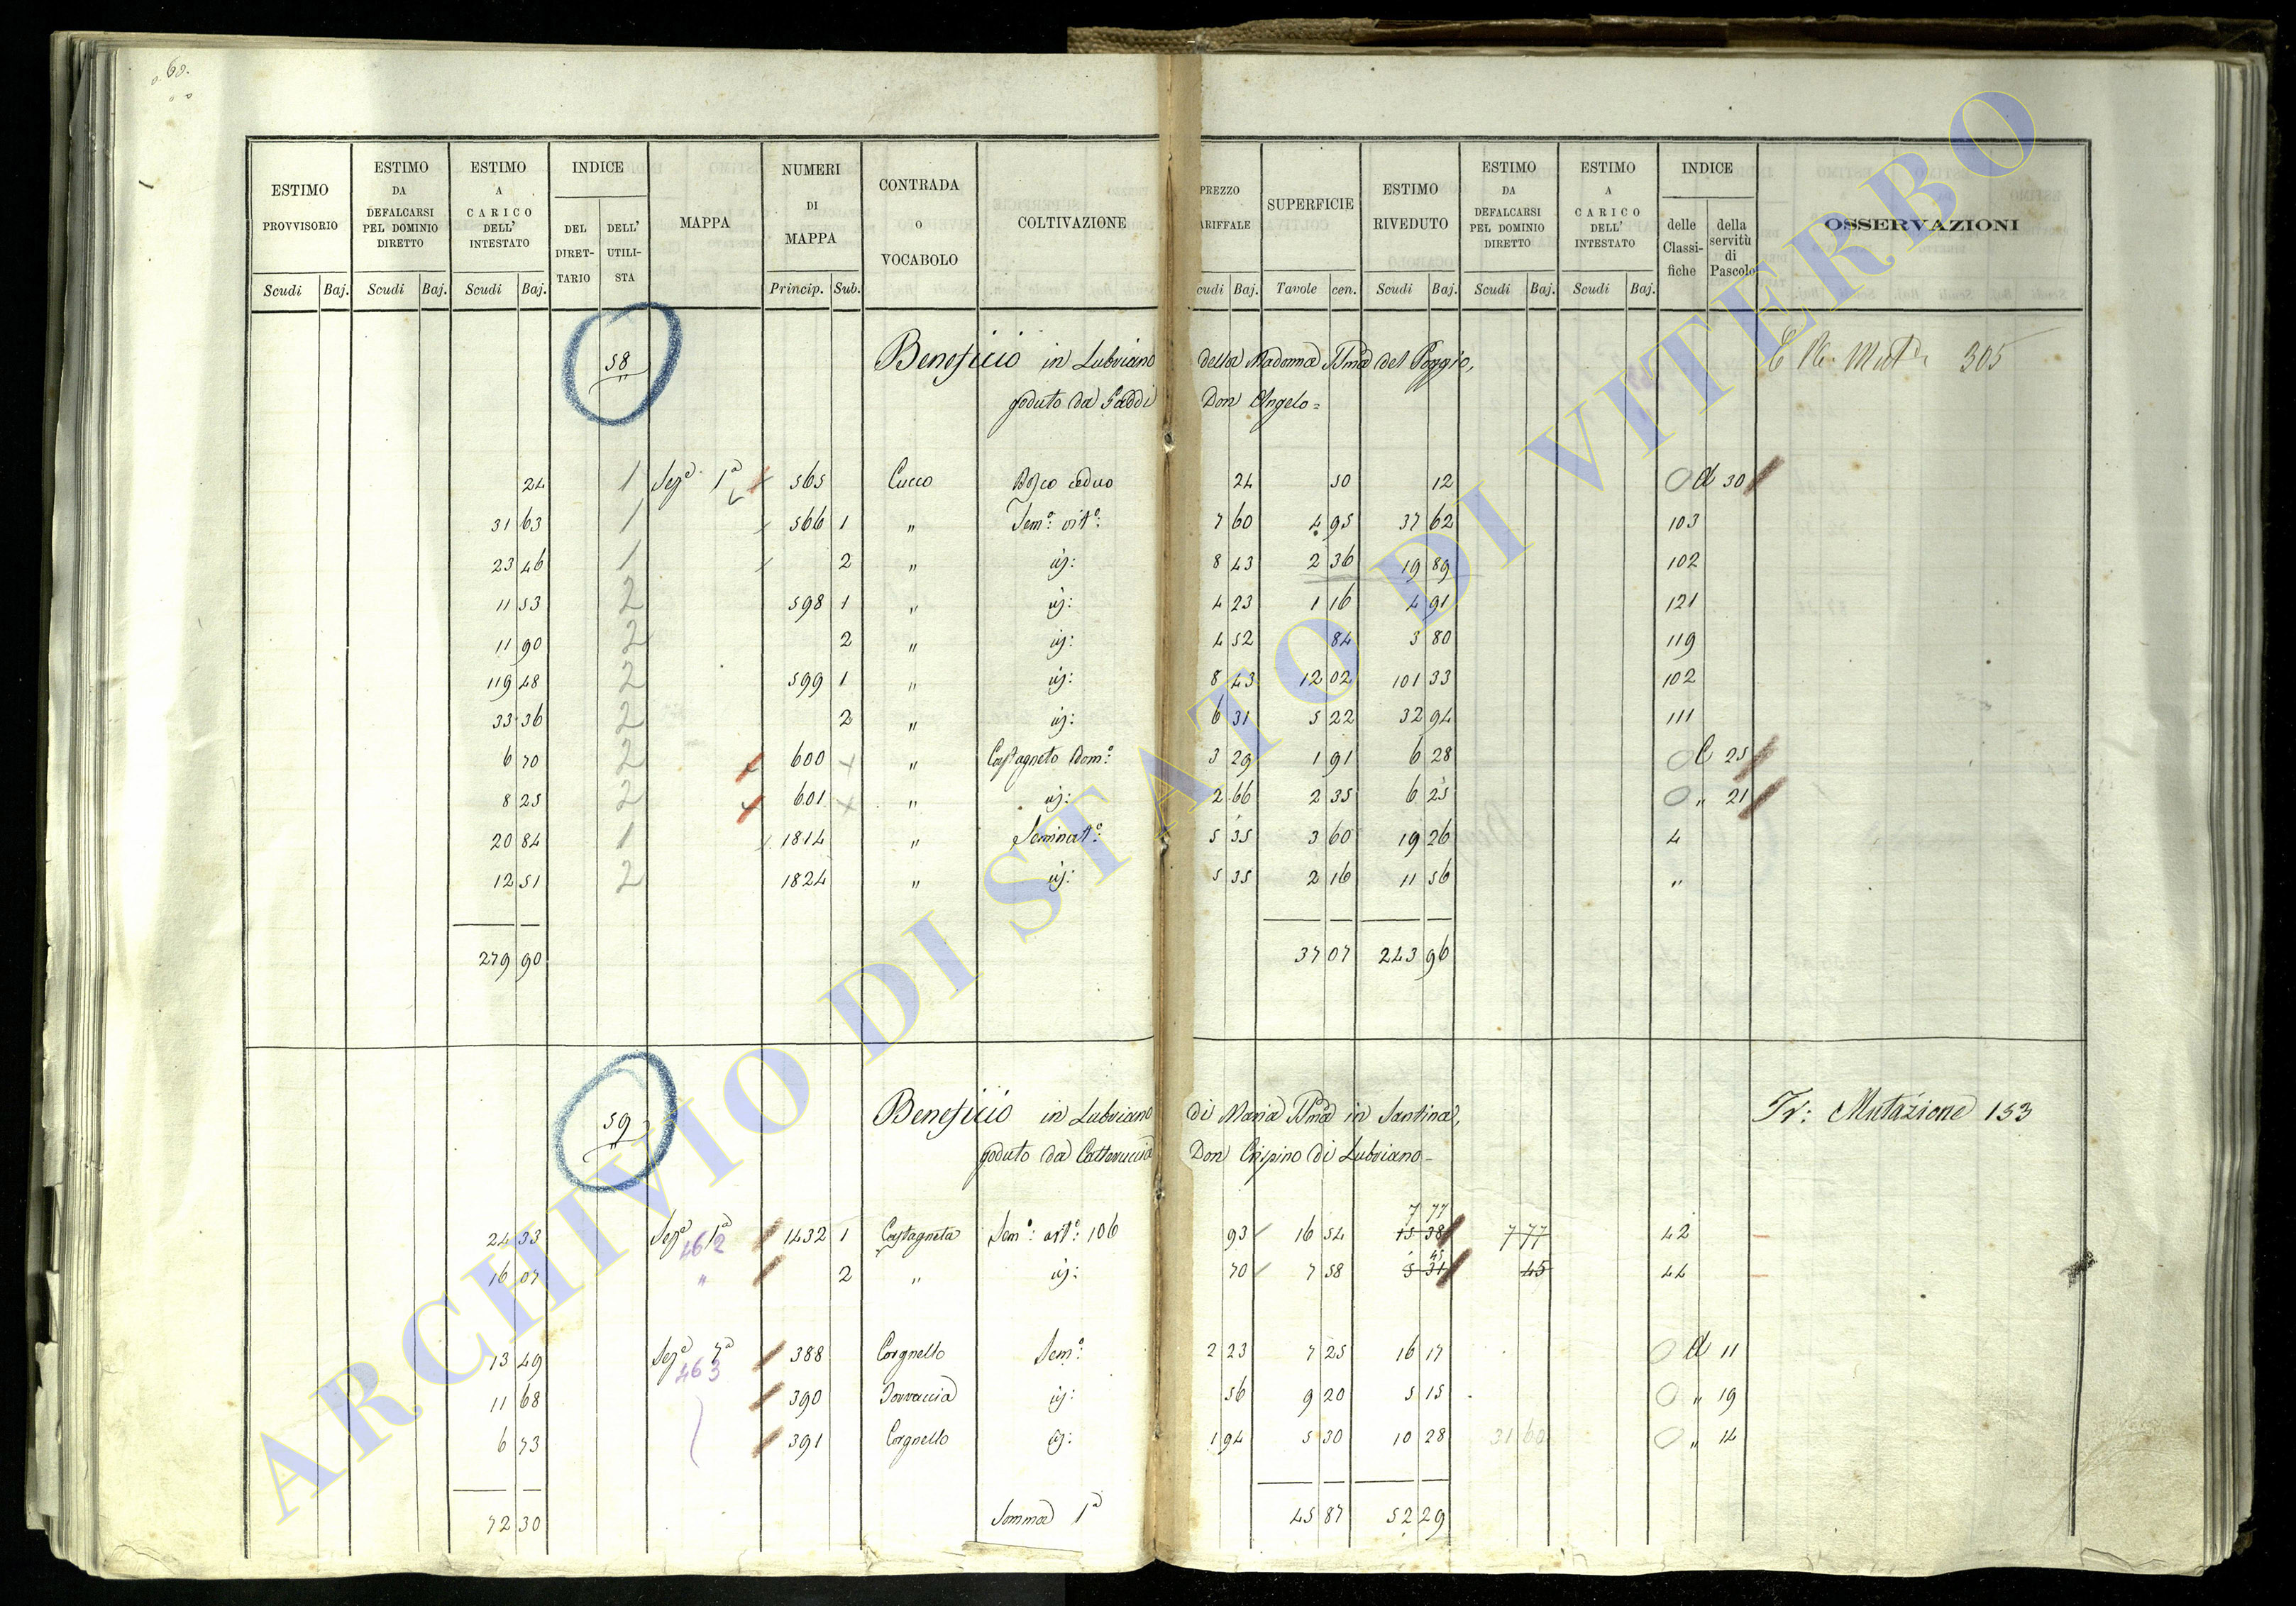 60.
ESTIMO PROVVISORIO Scudi Baj.
ESTIMO DA DEFALCARSI PEL DOMINIO DIRETTO Scudi Baj.
ESTIMO A CARICO DELL' INTESTATO Scudi Baj.
INDICE DEL DIRETTARIO DELL' UTILISTA
MAPPA
NUMERI DI MAPPA Princip. Sub.
CONTRADA O VOCABOLO
COLTIVAZIONE
PREZZO ARIFFALE cudi Baj.
SUPERFICIE Tavole cen.
ESTIMO RIVEDUTO Scudi Baj.
ESTIMO DA DEFALCARSI PEL DOMINIO DIRETTO Scudi Baj.
ESTIMO A CARICO DELL' INTESTATO Scudi Baj.
INDICE delle Classifiche della servitù di Pascolo
OSSERVAZIONI
58 Beneficio in Lubriano della Madonna SSma del Poggio, 305
goduto da Gaddi Don Angelo =
24 1 Sez.a 1a 565 Cucco Bosco ceduo 24 50 12 d 30
31 63 1 566 1 " Sem.o vit.o: 7 60 4 95 37 62 103
23 46 1 2 " id: 8 43 2 36 19 89 102
11 53 2 598 1 " id: 4 23 1 16 4 91 121
11 90 2 2 " id: 4 52 84 3 80 119
119 48 2 599 1 " id: 8 43 12 02 101 33 102
33 36 2 2 " id: 6 31 5 22 32 94 111
6 70 2 600 " Castagneto Dom.o 3 29 1 91 6 28 C 25
8 25 2 601 " id: 2 66 2 35 6 25 " 21
20 84 1 1814 " Seminat.o 5 35 3 60 19 26 4
12 51 2 1824 " id: 5 35 2 16 11 56 "
279 90 37 07 243 96
59 Beneficio in Lubriano di Maria SSma in Santina, Tr: Mutazione 153
goduto da Catteruccia Don Crispino di Lubriano -
7 77
24 33 Sez.a 1a 462 1432 1 Castagneta Sem.o: vit.o: 106 93 16 54 15 38 7 77 42
45
16 07 " 2 " id: 70 7 58 5 31 45 44
13 49 Sez.a 7a 463 388 Corgnello Sem.o: 2 23 7 25 16 17 d 11
11 68 390 Torraccia id: 56 9 20 5 15 " 19
6 73 391 Corgnello id: 1 94 5 30 10 28 31 60 " 14
72 30 Somma 1a 45 87 52 29
ARCHIVIO DI STATO DI VITERBO